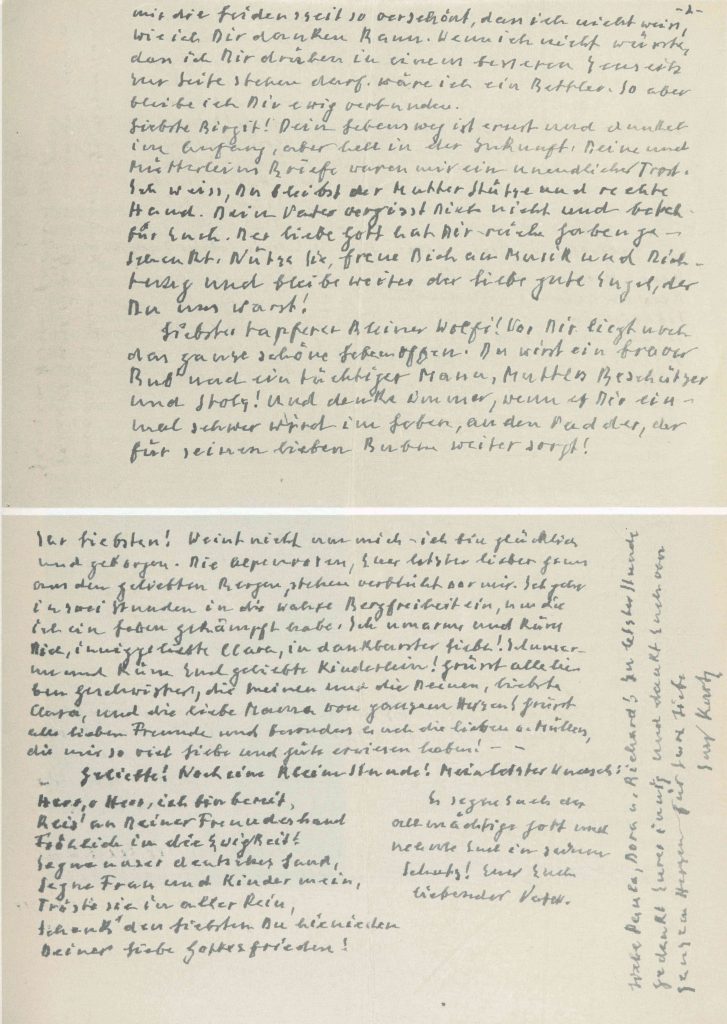 -2-
mir die Leidenszeit so verschönt, dass ich nicht weiss,
wie ich Dir danken kann. Wenn ich nicht wüsste,
dass ich Dir drüben in einem besseren Jenseits
zur Seite stehen darf, wäre ich ein Bettler. So aber
bleibe ich Dir ewig verbunden.
Liebste Birgit! Dein Lebensweg ist ernst und dunkel
im Anfang, aber hell in der Zukunft. Deine und
Mütterleins Briefe waren mir ein unendlicher Trost.
Ich weiss, Du bleibst der Mutter Stütze und rechte
Hand. Dein Vater vergisst Dich nicht und betet
für Euch. Der liebe Gott hat Dir reiche Gaben ge-
schenkt. Nütze sie, freue Dich an Musik und Dich-
tung und bleibe weiter der liebe gute Engel, der
Du uns warst!
Liebster tapferer kleiner Wolfi! Vor Dir liegt noch
das ganze schöne Leben offen. Du wirst ein braver
Bub und ein tüchtiger Mann, Muttles Beschützer
und Stolz! Und denke immer, wenn es Dir ein-
mal schwer wird im Leben, an den Vadder, der
für seinen lieben Buben weiter sorgt!
Ihr Liebsten! Weint nicht um mich - ich bin glücklich
und geborgen. Die Alpenrosen, Euer letzter lieber Gruss
aus den geliebten Bergen, stehen verblüht vor mir. Ich gehe
in zwei Stunden in die wahre Bergfreiheit ein, um die
ich ein Leben gekämpft habe. Ich umarme und küsse
Dich, inniggeliebte Clara, in dankbarster Liebe! Ich umar-
me und küsse Euch geliebte Kinderlein! Grüsst alle lie-
ben Geschwister, die meinen und die Deinen, liebste
Clara, und die liebe Mama von ganzem Herzen! Grüsst
alle lieben Freunde und besonders auch die lieben Müllers,
die mir so viel Liebe und Güte erwiesen haben! - -
Geliebte! Noch eine kleine Stunde! Mein letzter Wunsch:
Herr, o Herr, ich bin bereit,
Reis' an Deiner Freundeshand
Fröhlich in die Ewigkeit!
Segne unser deutsches Land,
Segne Frau und Kinder mein,
Tröste sie in aller Pein,
Schenk' den Liebsten Du hienieden
Deiner Liebe Gottesfrieden!
Es segne Euch der
allmächtige Gott und
nehme Euch in seinen
Schutz! Euer Euch
liebender Vater.
Liebe Paula, Dora u. Richard! In letzter Stunde
gedenkt Eurer innig und dankt Euch von
ganzem Herzen für Eure Liebe
Euer Kurt